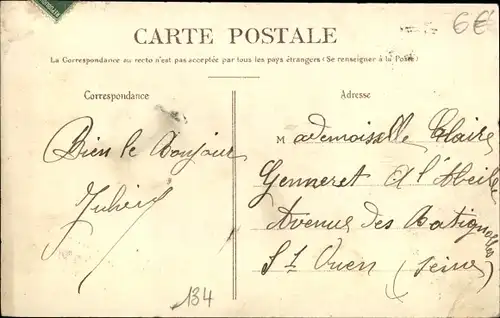 6€
CARTE POSTALE
La Correspondance au recto n'est pas acceptée par tous les pays étrangers (Se renseigner à la Poste)
Correspondance
Adresse
Bien le Bonjour
Mademoiselle Claire
Genneret A l'Abeille
Avenue des Batignolles
St Ouen (Seine)
134